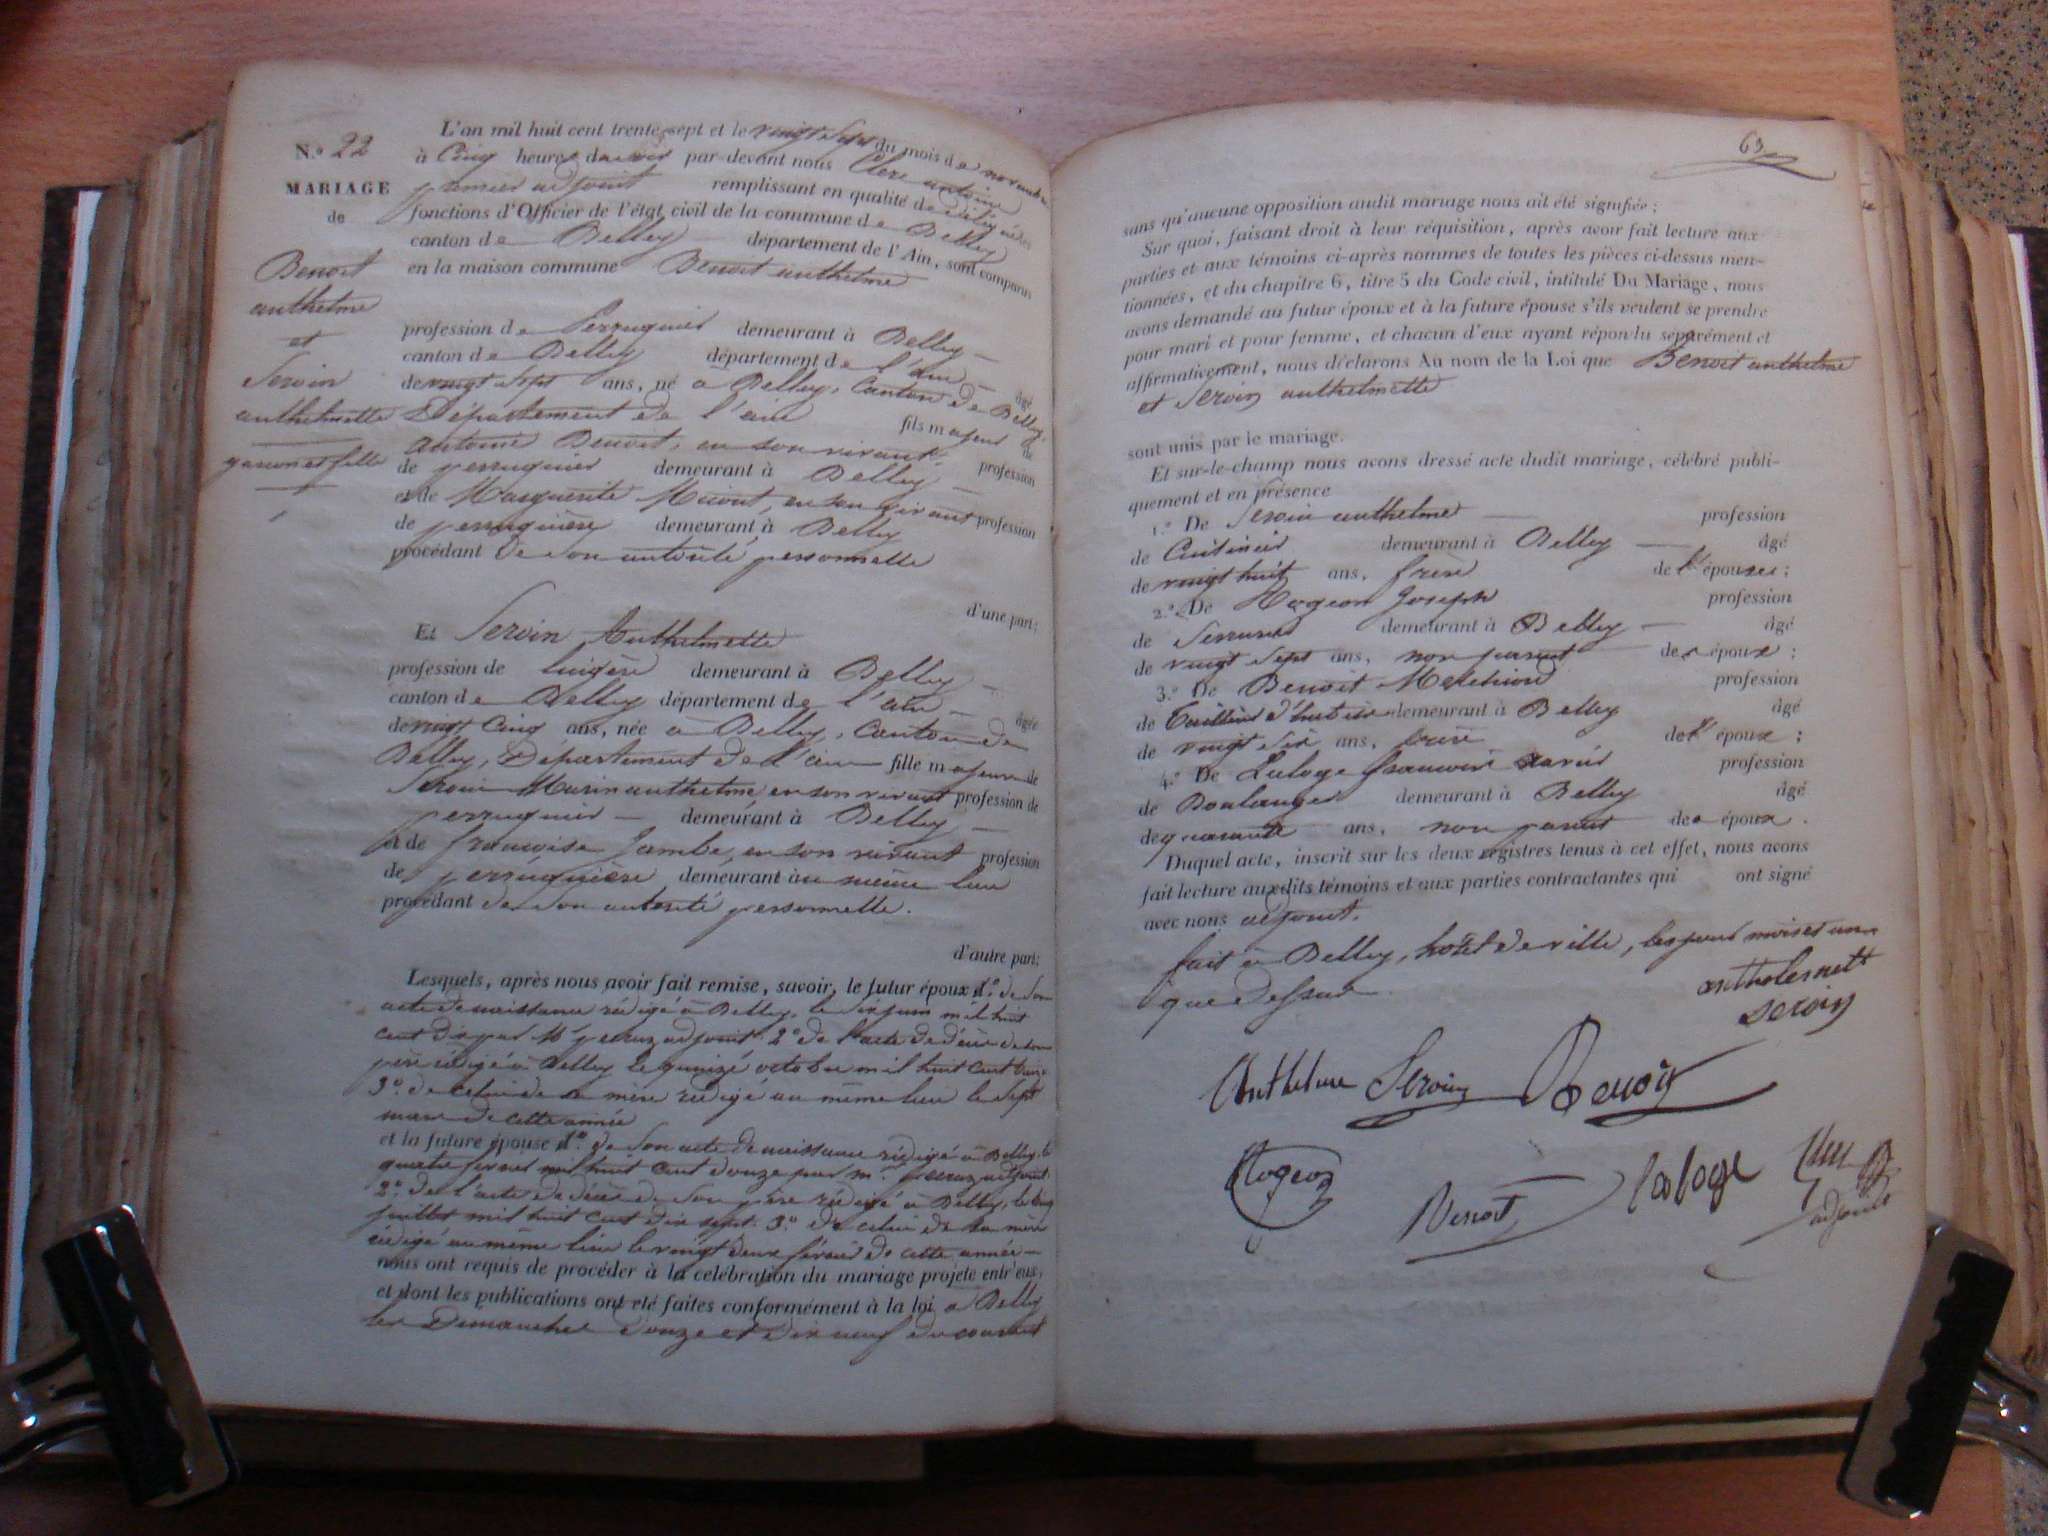 N.º 22
MARIAGE
de
Benoit
anthelme
et
Seroin
anthelmette
garçon et fille
L'an mil huit cent trente sept et le vingt sept du mois de novembre
à Cinq heures du soir par-devant nous Clerc antoine
premier adjoint remplissant en qualité de délégué les
fonctions d'Officier de l'état civil de la commune de Belley
canton de Belley département de l'Ain, sont comparus
en la maison commune Benoit anthelme
profession de Perruquier demeurant à Belley
canton de Belley département de l'ain âgé
de vingt sept ans, né à Belley, Canton de Belley,
Département de l'ain fils majeur de
antoine Benoit, en son vivant profession
de perruquier demeurant à Belley
et de Marguerite en son vivant profession
de perruquière demeurant à Belley
procédant de son autorité personnelle
d'une part;
Et Seroin Anthelmette
profession de lingère demeurant à Belley
canton de Belley département de l'ain âgée
de vingt cinq ans, née à Belley, Canton de
Belley, Département de l'ain fille majeure de
Seroin Marin anthelme en son vivant profession de
perruquier demeurant à Belley
et de françoise Jambe, en son vivant profession
de perruquière demeurant au même lieu
procédant de son autorité personnelle.
d'autre part;
Lesquels, après nous avoir fait remise, savoir, le futur époux 1.º de son
acte de naissance rédigé à Belley, le six juin mil huit
cent dix par Mr adjoint 2º de l'acte de décès de son
père rédigé à Belley le quinze octobre mil huit cent
3º de celui de sa mère rédigé au même lieu le sept
mars de cette année
et la future épouse 1º de son acte de naissance rédigé à Belley, le
quatre février mil huit cent douze par Mr adjoint
2º de l'acte de décès de son père rédigé à Belley, le cinq
juillet mil huit cent dix sept. 3º de celui de sa mère
rédigé au même lieu le vingt deux février de cette année
nous ont requis de procéder à la célébration du mariage projeté entr'eux,
et dont les publications ont été faites conformément à la loi à Belley
les Dimanches douze et dix neuf du courant
63
sans qu'aucune opposition audit mariage nous ait été signifiée;
Sur quoi, faisant droit à leur réquisition, après avoir fait lecture aux
parties et aux témoins ci-après nommés de toutes les pièces ci-dessus men-
tionnées, et du chapitre 6, titre 5 du Code civil, intitulé Du Mariage, nous
avons demandé au futur époux et à la future épouse s'ils veulent se prendre
pour mari et pour femme, et chacun d'eux ayant répondu séparément et
affirmativement, nous déclarons Au nom de la Loi que Benoit anthelme
et Seroin anthelmette
sont unis par le mariage.
Et sur-le-champ nous avons dressé acte dudit mariage, célébré publi-
quement et en présence
1.º De Seroin anthelme profession
de demeurant à Belley âgé
de vingt huit ans, frère de l'épouse;
2.º De Rogeon Joseph profession
de Serrurier demeurant à Belley âgé
de vingt sept ans, non parent des époux;
3.º De Benoit Melchior profession
de Tailleur d'habits demeurant à Belley âgé
de vingt six ans, frère de l'époux;
4.º De Laloge françois xavier profession
de Boulanger demeurant à Belley âgé
de quarante ans, non parent des époux.
Duquel acte, inscrit sur les deux registres tenus à cet effet, nous avons
fait lecture auxdits témoins et aux parties contractantes qui ont signé
avec nous adjoint.
fait à Belley, hôtel de ville, les jour mois et an
que dessus
antholemett
seroin
Anthelme Seroin Benoit
Rogeon Benoit laloge
adjoint